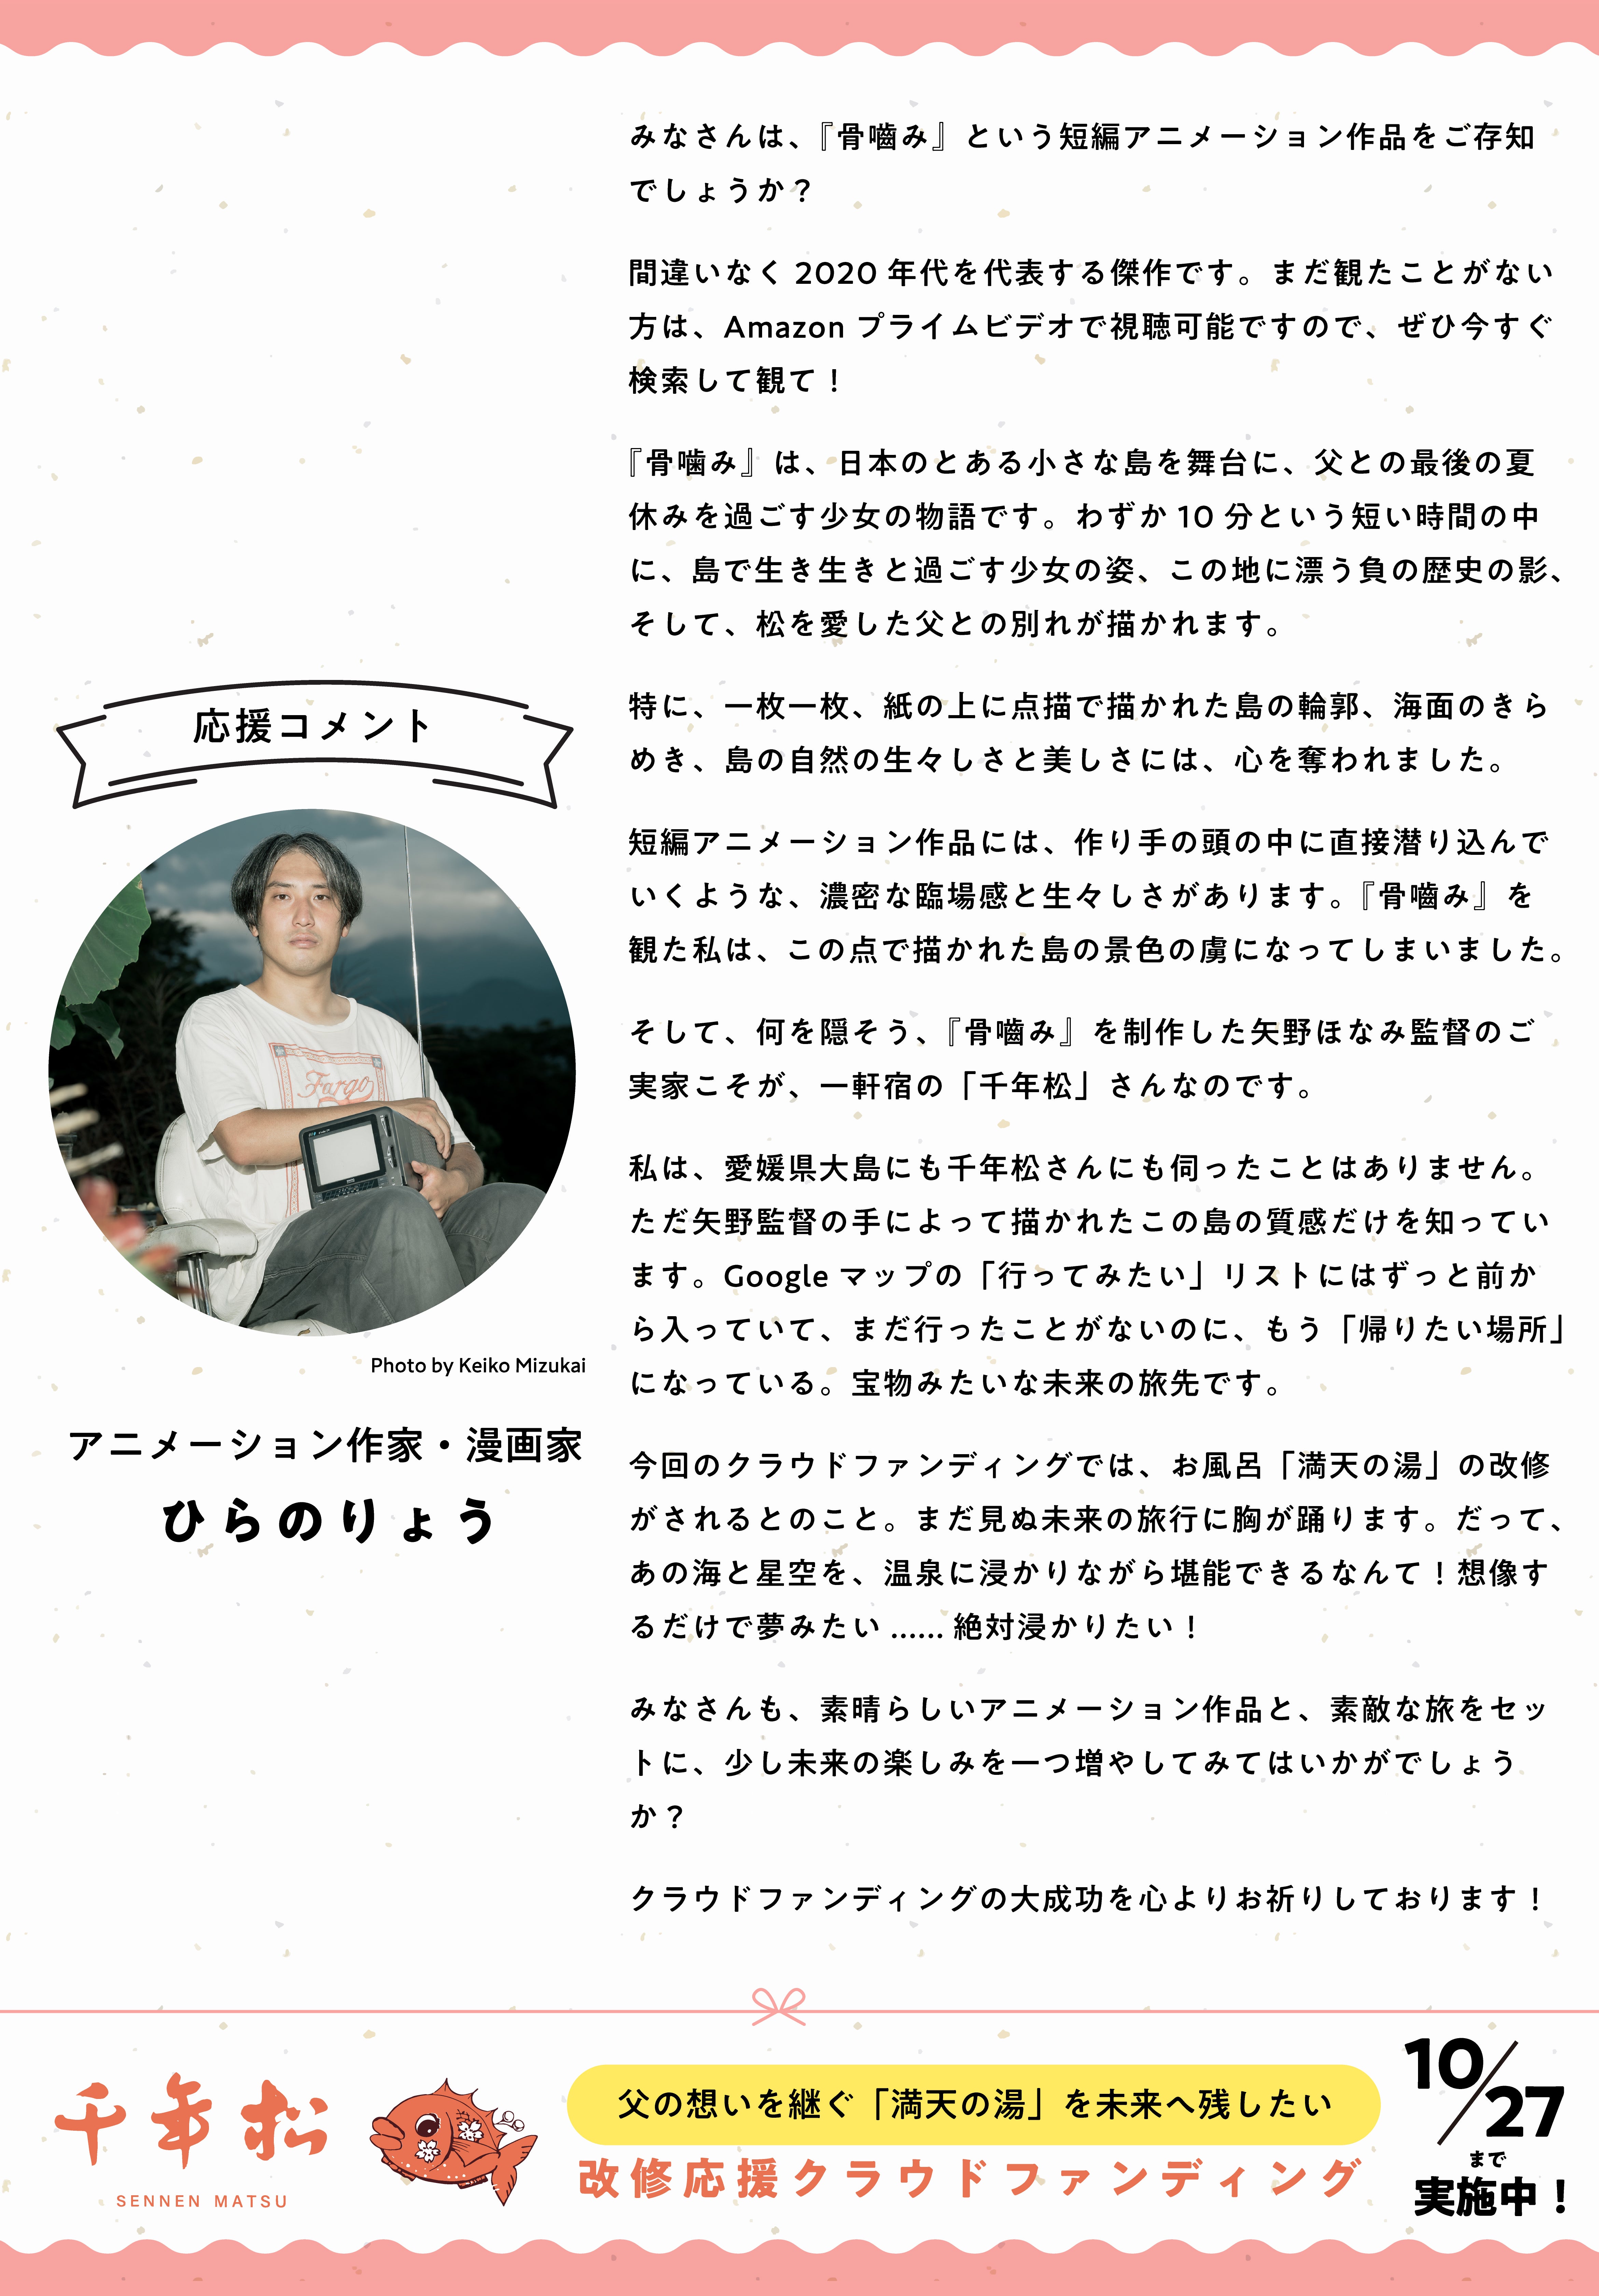 みなさんは、『骨嚙み』という短編アニメーション作品をご存知
でしょうか？
間違いなく 2020 年代を代表する傑作です。まだ観たことがない
方は、Amazon プライムビデオで視聴可能ですので、ぜひ今すぐ
検索して観て！
『骨嚙み』は、日本のとある小さな島を舞台に、父との最後の夏
休みを過ごす少女の物語です。わずか 10 分という短い時間の中
に、島で生き生きと過ごす少女の姿、この地に漂う負の歴史の影、
そして、松を愛した父との別れが描かれます。
特に、一枚一枚、紙の上に点描で描かれた島の輪郭、海面のきら
めき、島の自然の生々しさと美しさには、心を奪われました。
短編アニメーション作品には、作り手の頭の中に直接潜り込んで
いくような、濃密な臨場感と生々しさがあります。『骨嚙み』を
観た私は、この点で描かれた島の景色の虜になってしまいました。
そして、何を隠そう、『骨嚙み』を制作した矢野ほなみ監督のご
実家こそが、一軒宿の「千年松」さんなのです。
私は、愛媛県大島にも千年松さんにも伺ったことはありません。
ただ矢野監督の手によって描かれたこの島の質感だけを知ってい
ます。Google マップの「行ってみたい」リストにはずっと前か
ら入っていて、まだ行ったことがないのに、もう「帰りたい場所」
になっている。宝物みたいな未来の旅先です。
今回のクラウドファンディングでは、お風呂「満天の湯」の改修
がされるとのこと。まだ見ぬ未来の旅行に胸が踊ります。だって、
あの海と星空を、温泉に浸かりながら堪能できるなんて！想像す
るだけで夢みたい ...... 絶対浸かりたい！
みなさんも、素晴らしいアニメーション作品と、素敵な旅をセッ
トに、少し未来の楽しみを一つ増やしてみてはいかがでしょう
か？
クラウドファンディングの大成功を心よりお祈りしております！
応援コメント
Fargo
Photo by Keiko Mizukai
アニメーション作家・漫画家
ひらのりょう
千年松
SENNEN MATSU
父の想いを継ぐ「満天の湯」を未来へ残したい
改修応援クラウドファンディング
10/27
まで
実施中！